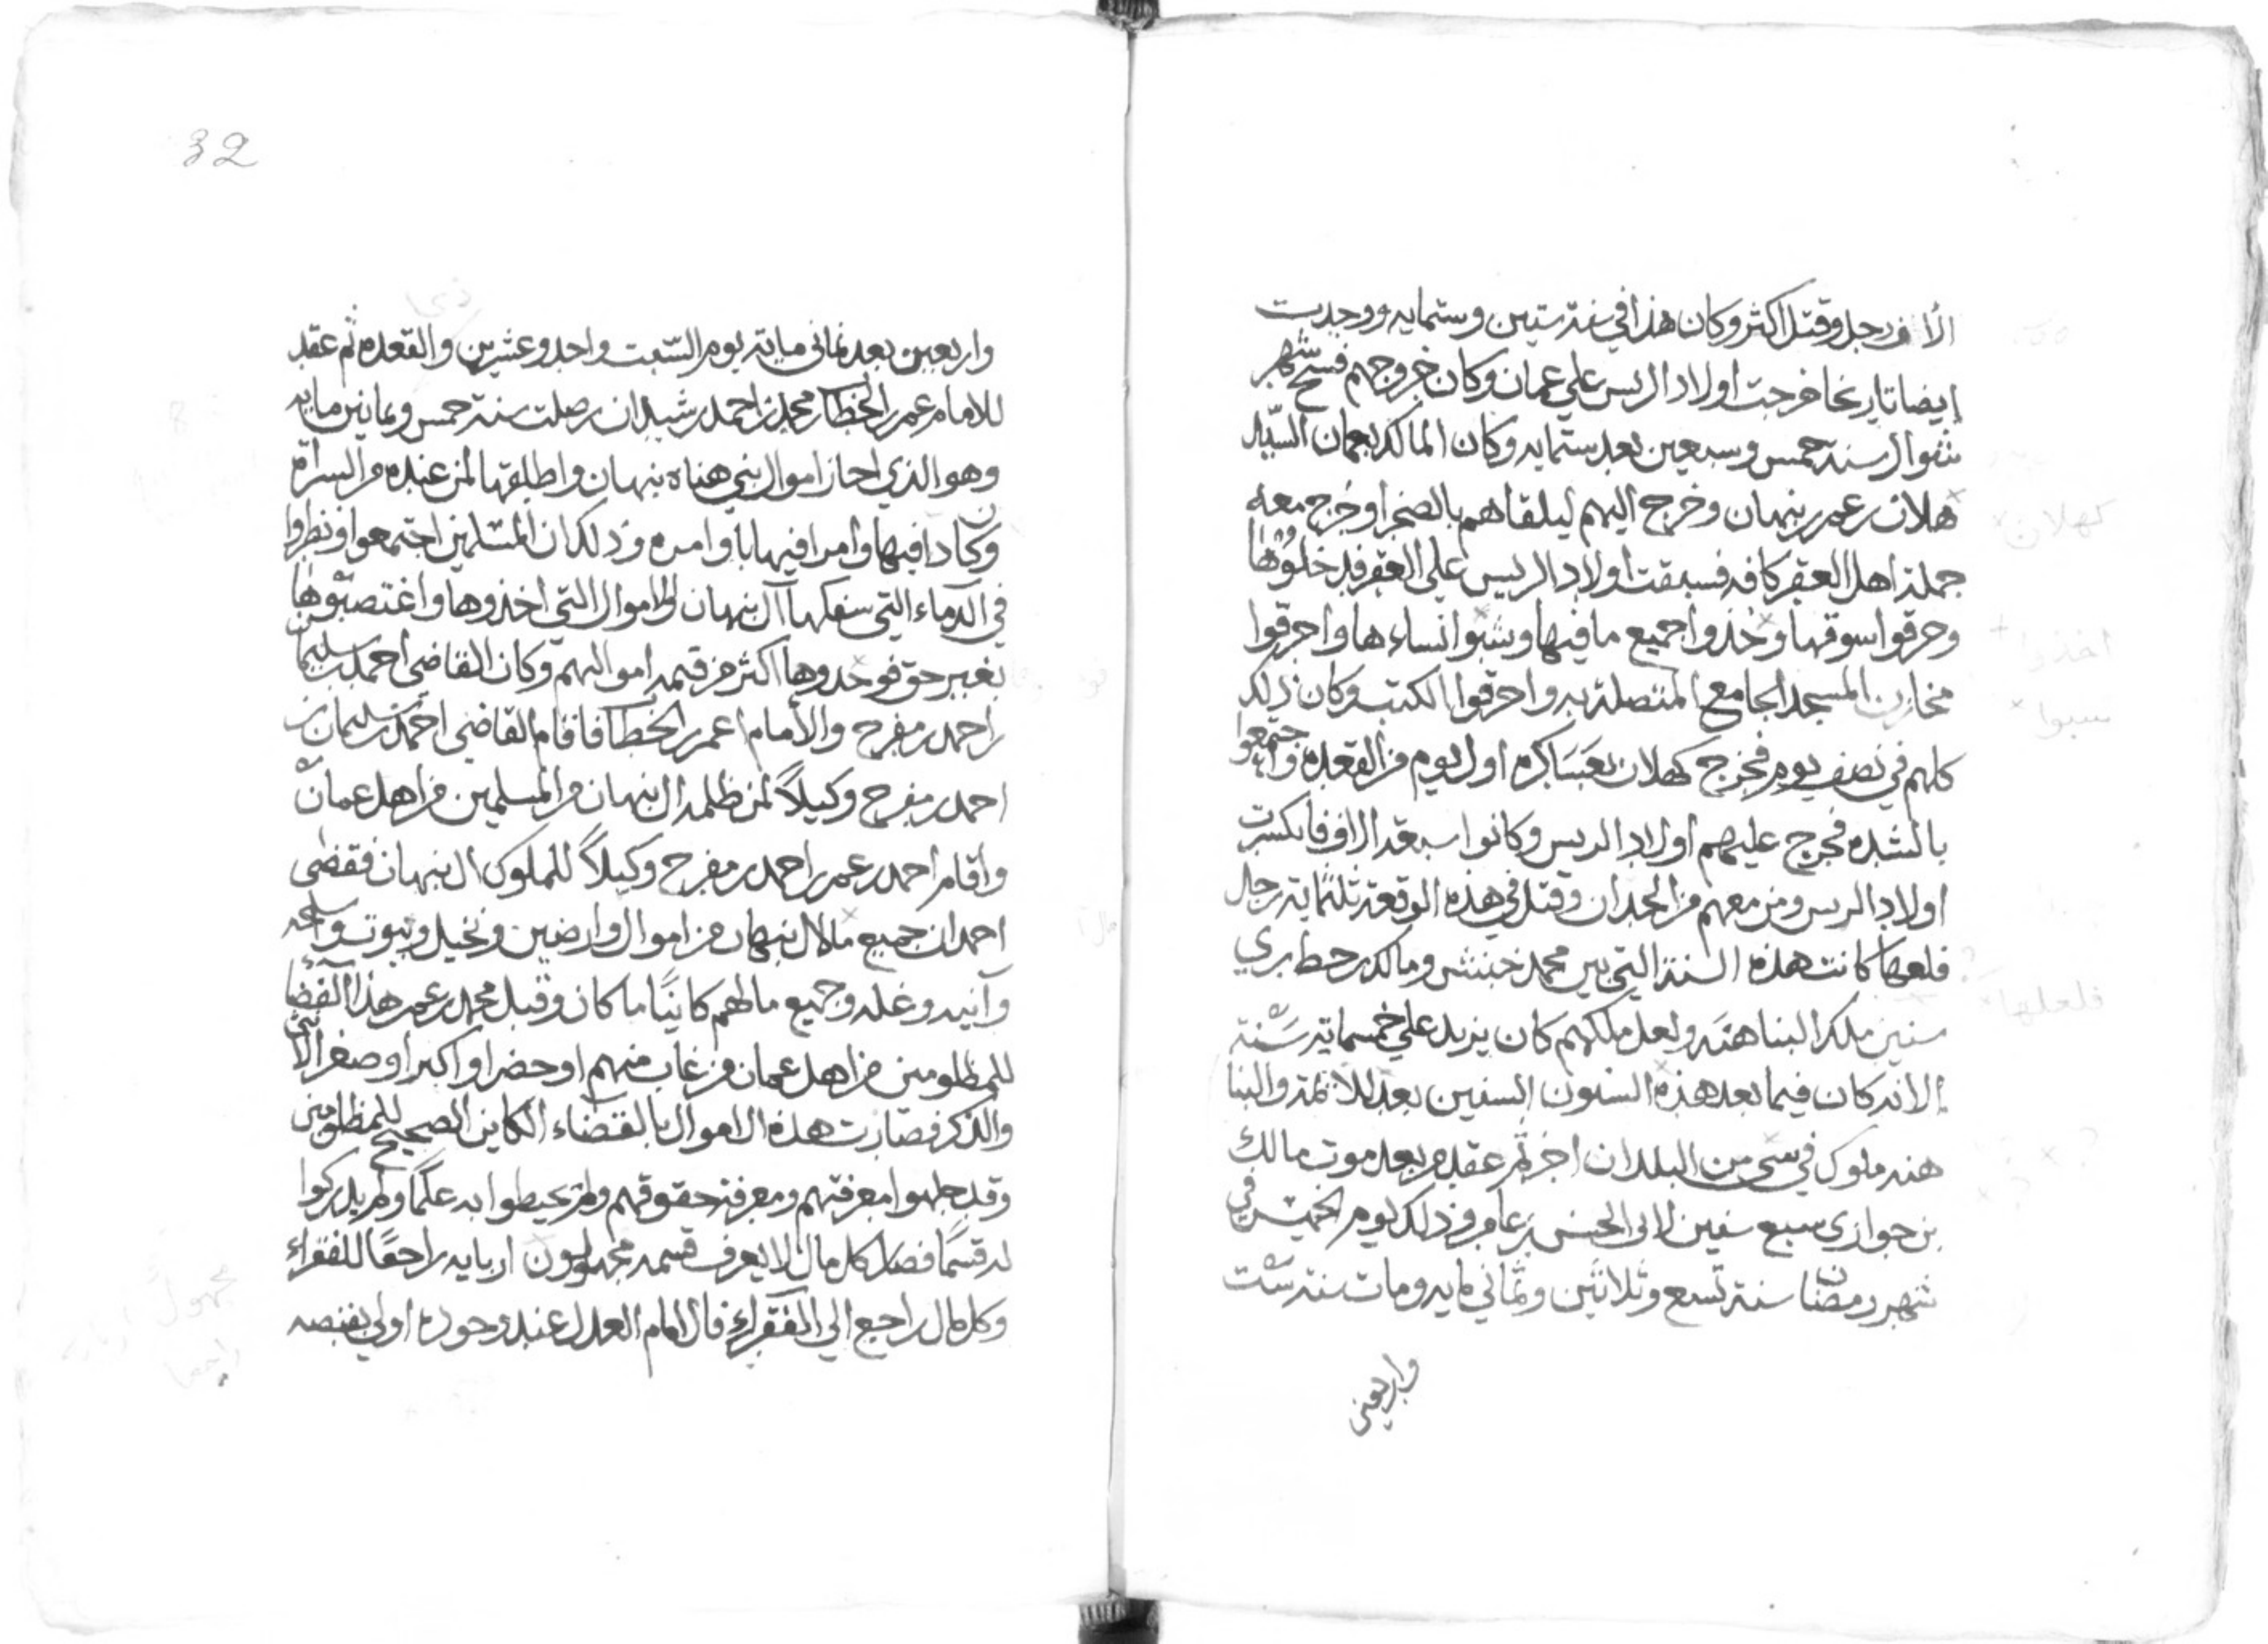 الاف رجل وقتل اكثر وكان هذا في سنة ستين وستمايه ووجدت
ايضا تاريخا خرجت اولاد الريس علي عمان وكان خروجهم فسح شهر
شوال سنة خمس وسبعين بعد ستمايه وكان المالك بعمان السيد
هلان بن عمر بن نبهان وخرج اليهم ليلقاهم بالصحرا وخرج معه
جملة اهل العقر كافه فسبقت اولاد الريس علي العقر فدخلوها
وحرقوا سوقها وخذوا جميع ما فيها وشبوا نساءها واحرقوا
مخازن المسجد الجامع المتصلة به واحرقوا الكتب وكان ذلك
كلهم في نصف يوم فخرج كهلان بعساكره اول يوم من القعده واجتمعوا
بالشده فخرج عليهم اولاد الريس وكانوا سبعة الاف فانكسرت
اولاد الريس ومن معهم من الحدان وقتل في هذه الوقعة ثلثماية رجل
فلعها كانت هذه السنة التي بين محمد بن خنبش ومالك بن حطابري
سنين ملك البناهنه ولعل ملكهم كان يزيد علي خمسماية سنة
الا انه كان فيما بعد هذه السنون السنين بعد للائمة والبنا
هنه ملوك في شي من البلدان اخر ثم عقد من بعد موت مالك
بن حوازي سبع سنين لابي الحسن بن عامر وذلك يوم الخميس في
شهر رمضان سنة تسع وثلاثين وثماني مايه ومات سنة ست
واربعين
32
واربعين بعد ثماني ماية يوم السبت واحد وعشرين والقعده ثم عقد
للامام عمر بن الخطاب بن محمد بن احمد بن شيدان بن صلت سنة خمس وثمانين مايه
وهو الذي احاز اموال بني هناه نبهان واطلقها لمن عنده من السراة
وكان دافيها وامر افيها باوامره وذلك ان المسلمين اجتمعوا ونظروا
في الدماء التي سفكها آل نبهان والاموال التي اخذوها واغتصبوها
بغير حق فوجدوها اكثر من قيمة اموالهم وكان القاضي احمد بن سليمان
بن احمد بن مفرح والامام عمر بن الخطاب فاقام القاضي احمد بن سليمان بن
احمد بن مفرح وكيلاً لمن ظلمه ال نبهان من المسلمين من اهل عمان
واقام احمد بن عمر بن احمد بن مفرح وكيلاً للملوك ال نبهان فقضى
احمد ان جميع مالال نبهان من اموال وارضين ونخيل وبيوت واسلحه
وآنيه وغله وجميع مالهم كاينًا ما كان وقبل محمد بن عمر هذا القضا
للمظلومين من اهل عمان من غاب منهم او حضر او اكبر او صغر الانثي
والذكر فصارت هذه الاموال بالقضاء الكاين الصحيح للمظلومين
وقد جهلوا معرفتهم ومعرفة حقوقهم ولم يحيطوا به علمًا ولم يدركوا
له قسمًا فصار كل مال لا يعرف قسمه مجهولون اربابه راجعًا للفقراء
وكل مال راجع الي الفقراء فال امام العدل عند وجوده اولي بقبضه
كهلان
اخذوا
سبوا
فلعلها